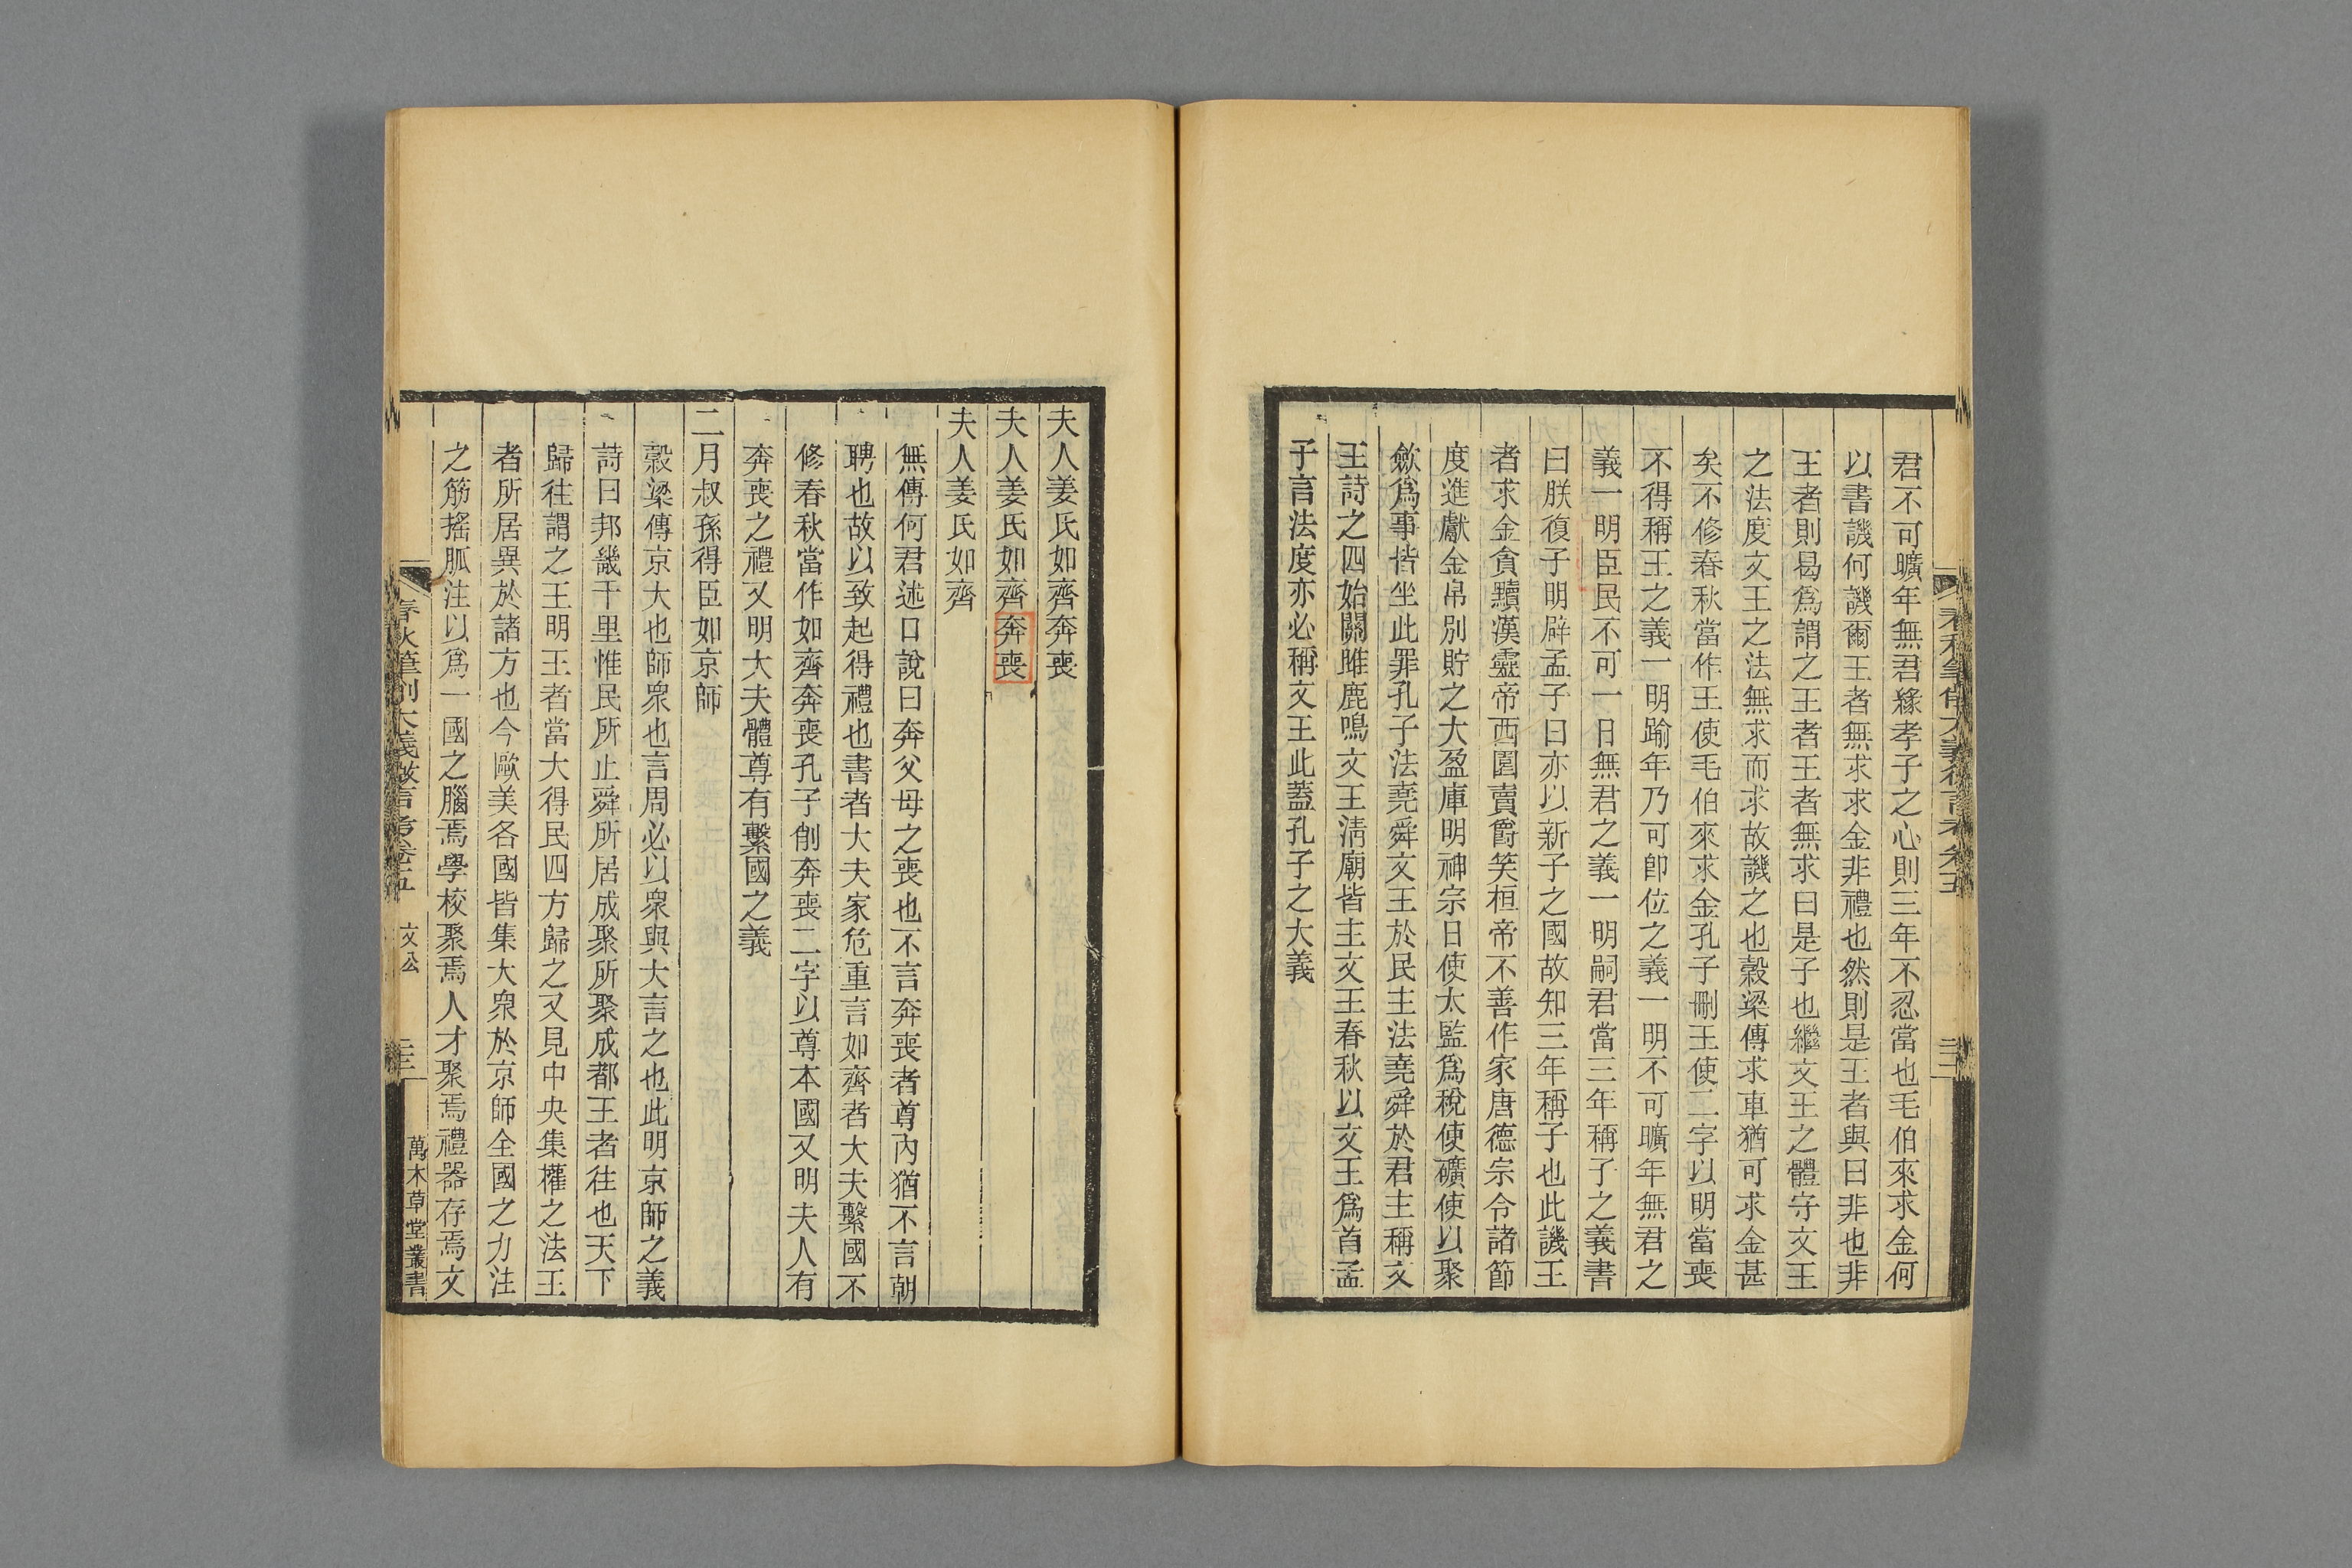 君不可曠年無君緣孝子之心則三年不忍當也毛伯來求金何
以書譏何譏爾王者無求求金非禮也然則是王者與曰非也非
王者則曷爲謂之王者王者無求曰是子也繼文王之體守文王
之法度文王之法無求而求故譏之也穀梁傳求車猶可求金甚
矣不修春秋當作王使毛伯來求金孔子刪王使二字以明當喪
不得稱王之義一明踰年乃可卽位之義一明不可曠年無君之
義一明臣民不可一日無君之義一明嗣君當三年稱子之義書
曰朕復子明辟孟子曰亦以新子之國故知三年稱子也此譏王
者求金貪黷漢靈帝西園賣爵笑桓帝不善作家唐德宗令諸節
度進獻金帛別貯之大盈庫明神宗日使太監爲稅使礦使以聚
斂爲事皆坐此罪孔子法堯舜文王於民主法堯舜於君主稱文
王詩之四始關雎鹿鳴文王淸廟皆主文王春秋以文王爲首孟
子言法度亦必稱文王此蓋孔子之大義
夫人姜氏如齊奔喪
夫人姜氏如齊奔喪
夫人姜氏如齊
無傳何君述口說曰奔父母之喪也不言奔喪者尊內猶不言朝
聘也故以致起得禮也書者大夫家危重言如齊者大夫繫國不
修春秋當作如齊奔喪孔子削奔喪二字以尊本國又明夫人有
奔喪之禮又明大夫體尊有繫國之義
二月叔孫得臣如京師
穀梁傳京大也師衆也言周必以衆與大言之也此明京師之義
詩曰邦畿千里惟民所止舜所居成聚所聚成都王者往也天下
歸往謂之王明王者當大得民四方歸之又見中央集權之法王
者所居異於諸方也今歐美各國皆集大衆於京師全國之力注
之筋搖脈注以爲一國之腦焉學校聚焉人才聚焉禮器存焉文
春秋筆削大義微言考卷五 文公 萬木草堂叢書